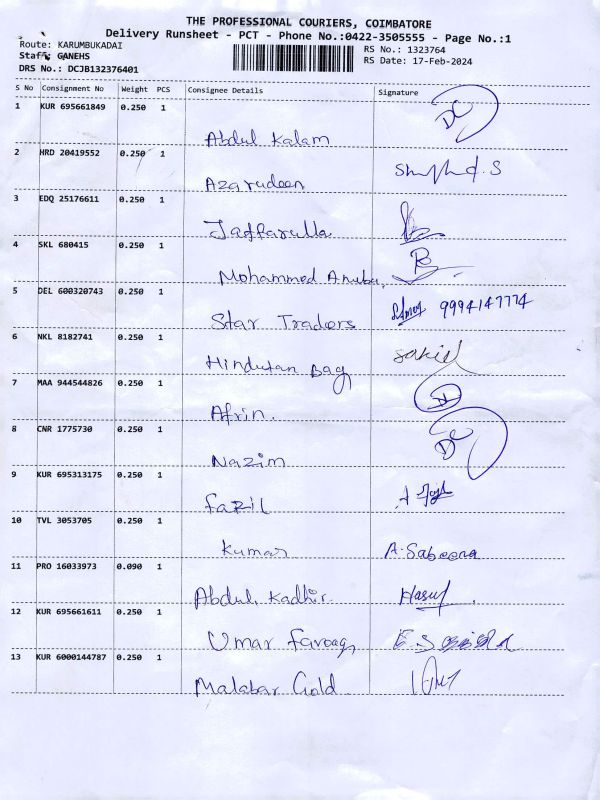 THE PROFESSIONAL COURIERS, COIMBATORE
Delivery Runsheet - PCT - Phone No.:0422-3505555 - Page No.:1
Route: KARUMBUKADAI RS No.: 1323764
Staff: GANEHS RS Date: 17-Feb-2024
DRS No.: DCJB132376401
S No Consignment No Weight PCS Consignee Details Signature
1 KUR 695661849 0.250 1 DC
Abdul Kalam
2 HRD 20419552 0.250 1
Azarudeen
3 EDQ 25176611 0.250 1
Jaffarulla
4 SKL 680415 0.250 1
Mohammed
5 DEL 600320743 0.250 1 9994147774
Star Traders
6 NKL 8182741 0.250 1
Hindutan Bag
7 MAA 944544826 0.250 1
Afrin.
8 CNR 1775730 0.250 1 DC
Nazim
9 KUR 695313175 0.250 1
Fazil
10 TVL 3053705 0.250 1
Kumar A.Sabeena
11 PRO 16033973 0.090 1
Abdul Kadhir.
12 KUR 695661611 0.250 1
Umar Farooq
13 KUR 6000144787 0.250 1
Malabar Gold